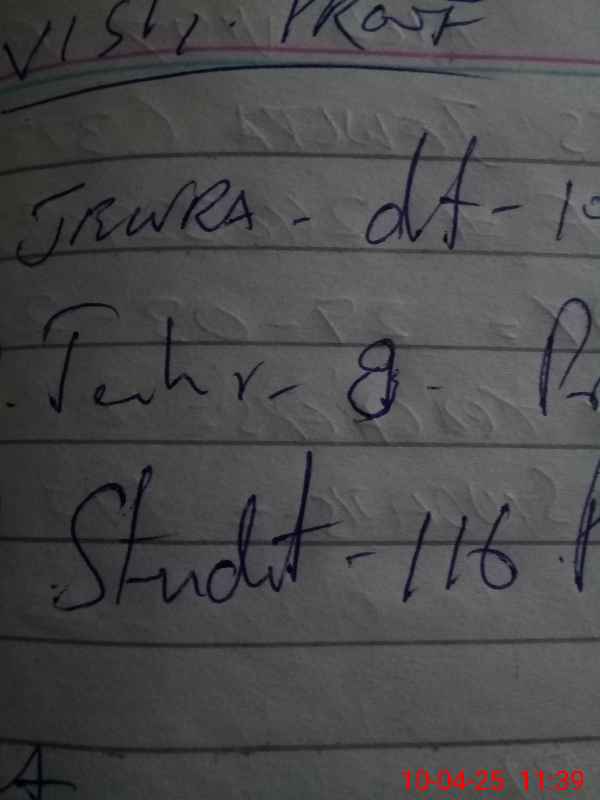 VISIT. PROOF
JEWRA - dt - 10
Teahr - 8 - Pr
Studt - 116 . P
A
10-04-25 11:39